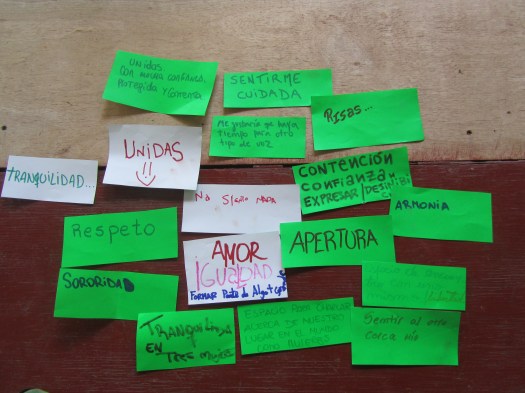 UNIDAS
CON MUCHA CONFIANZA,
PROTEGIDA Y CONTENTA
SENTIRME
CUIDADA
RISAS...
Me gustaría que haya
tiempo para otro
tipo de voz
UNIDAS
!!
TRANQUILIDAD...
CONTENCIÓN
CONFIANZA
EXPRESAR/DESINHIBI
No Siento NADA
ARMONIA
Respeto
AMOR
IGUALDAD
FORMAR Parte de Algo +
APERTURA
SORORIDAD
TRANQUILIDAD
EN
ESPACIO PARA CHARLAR
ACERCA DE NUESTRO
LUGAR EN EL MUNDO
COMO MUJERES
Sentir al otro
cerca mío